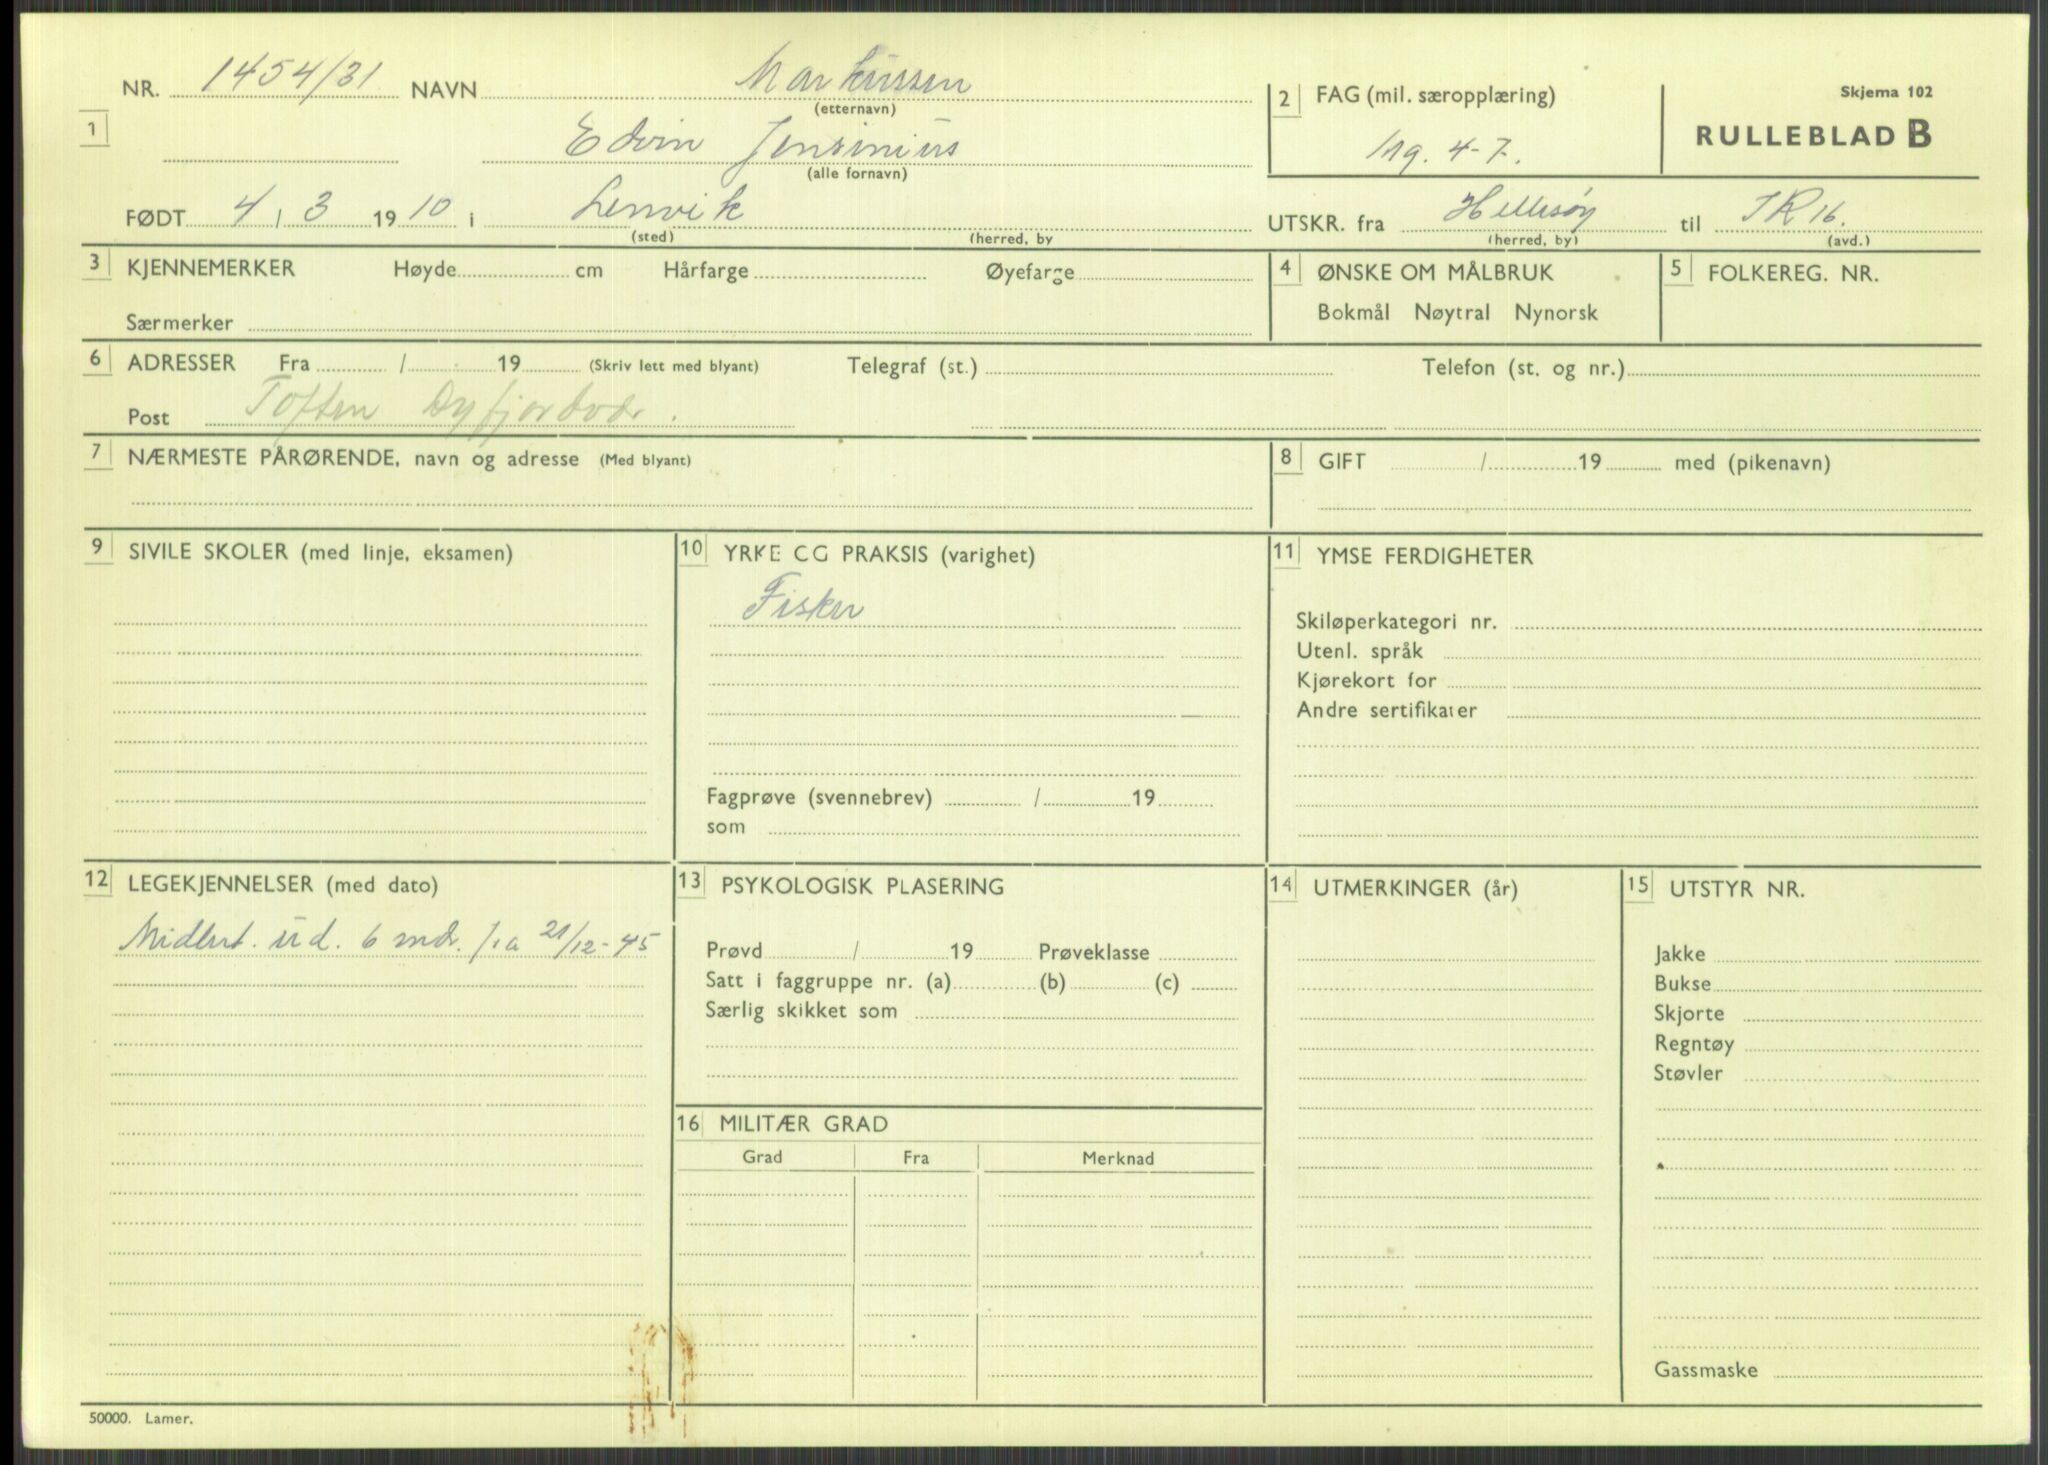 NR. 1454/31 NAVN Markussen
(etternavn)
1
Edvin Jensinius
(alle fornavn)
FØDT 4 / 3 1910 i Lenvik
(sted) (herred, by
2 FAG (mil. særopplæring)
4-7.
Skjema 102
RULLEBLAD B
UTSKR. fra Hillesøy til IR 16.
(herred, by) (avd.)
3 KJENNEMERKER Høyde cm Hårfarge Øyefarge
Særmerker
4 ØNSKE OM MÅLBRUK
Bokmål Nøytral Nynorsk
5 FOLKEREG. NR.
6 ADRESSER Fra / 19 (Skriv lett med blyant) Telegraf (st.) Telefon (st. og nr.)
Post Toften Øyfjordvær.
7 NÆRMESTE PÅRØRENDE, navn og adresse (Med blyant)
8 GIFT / 19 med (pikenavn)
9 SIVILE SKOLER (med linje, eksamen)
10 YRKE OG PRAKSIS (varighet)
Fisker
Fagprøve (svennebrev) / 19
som
11 YMSE FERDIGHETER
Skiløperkategori nr.
Utenl. språk
Kjørekort for
Andre sertifikater
12 LEGEKJENNELSER (med dato)
Midlert. ud. 6 mdr. fra 21/12-45
13 PSYKOLOGISK PLASERING
Prøvd / 19 Prøveklasse
Satt i faggruppe nr. (a) (b) (c)
Særlig skikket som
14 UTMERKINGER (år)
15 UTSTYR NR.
Jakke
Bukse
Skjorte
Regntøy
Støvler
Gassmaske
16 MILITÆR GRAD
Grad Fra Merknad
50000. Lamer.